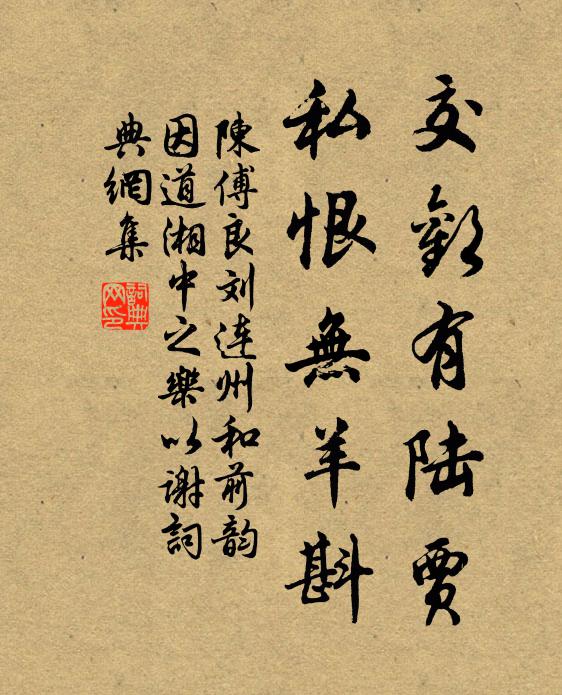 交歡有陆賈
私恨無羊斟
陳傅良刘連州和前韵
因道湘中之樂以谢詞
典網集
詞典
网印